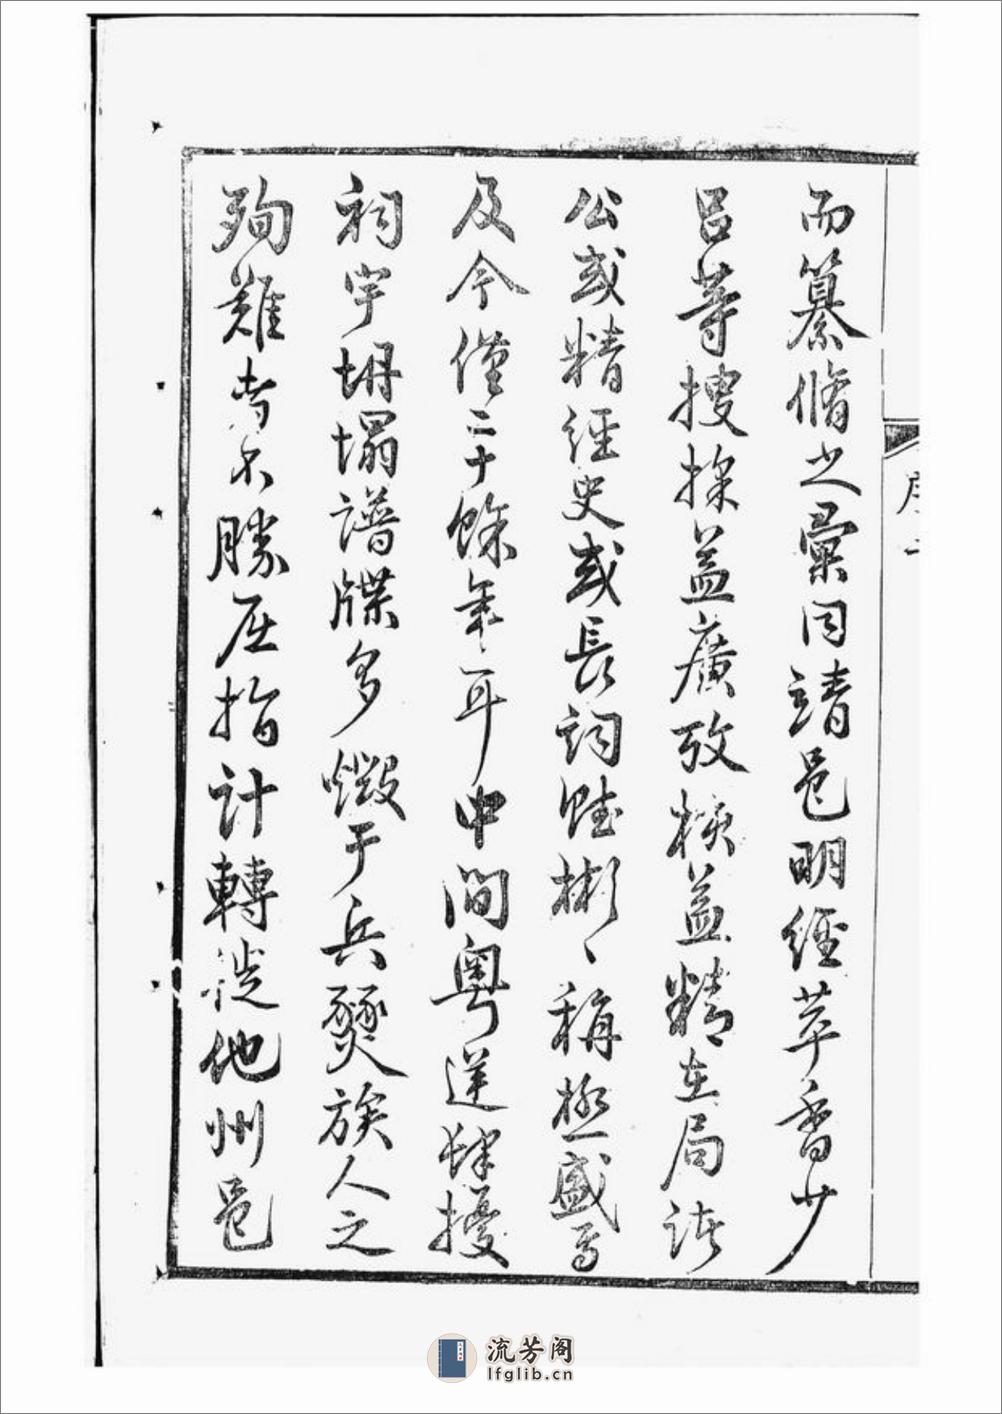 而纂脩之彙同靖邑明經萃香少
呂等搜採益廣攷核益精在局諸
公或精經史或長詞賦彬彬稱極盛焉
及今僅二十餘年耳中間粵逆肆擾
祠宇坍塌譜牒多燬于兵燹族人之
殉難者不勝屈指計轉徙他州邑
序
流芳阁
lfglib.cn